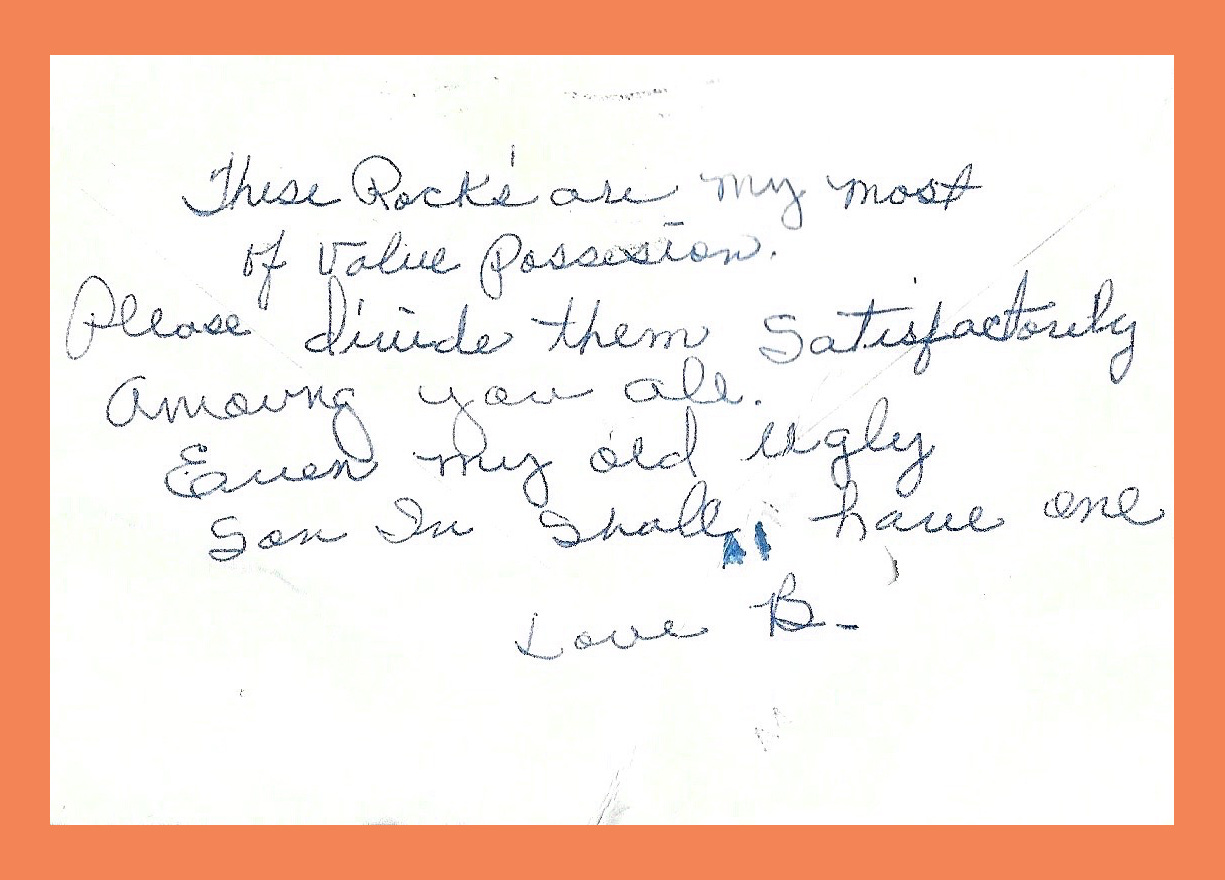 These Rock's are my most
of Value Possesion.
Please divide them Satisfactorily
Amoung you all.
Even my old ugly
Son In Shall have one
Love B.-